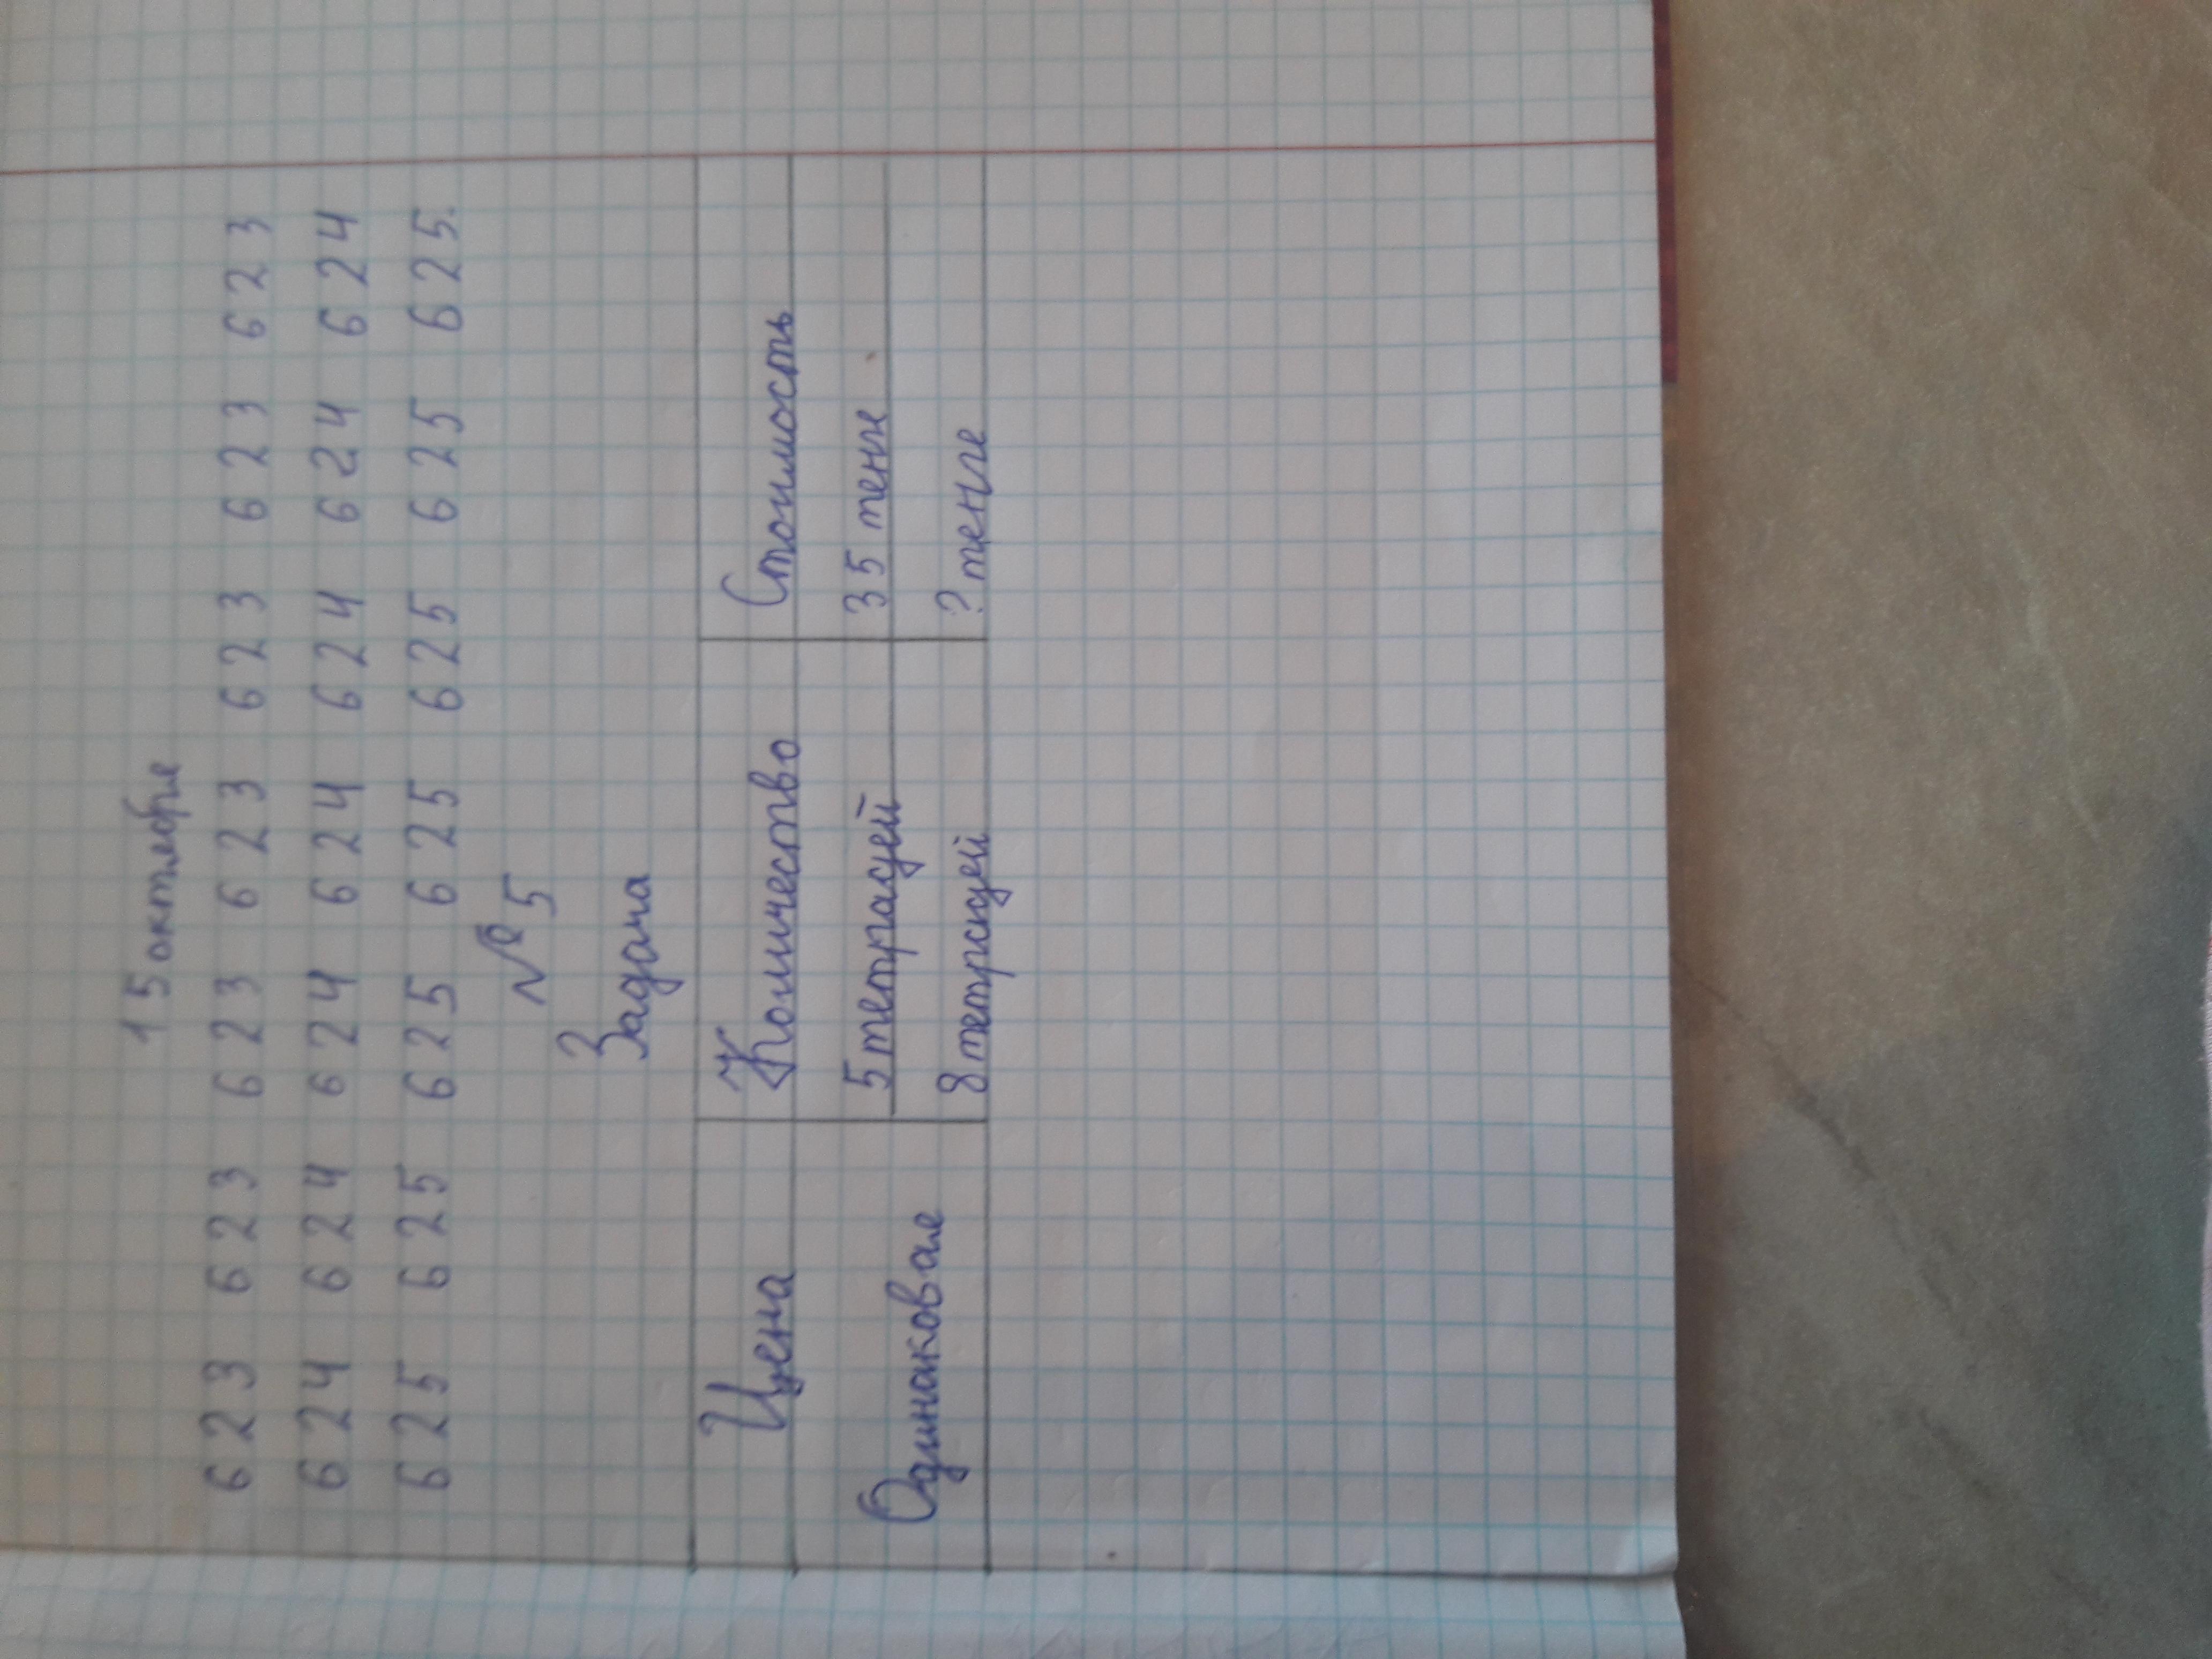 15 октября
623 623 623 623 623 623 623
624 624 624 624 624 624 624
625 625 625 625 625 625 625.
№5
Задача
Цена Количество Стоимость
5 тетрадей 35 тенге
Одинаковая
8 тетрадей ? тенге